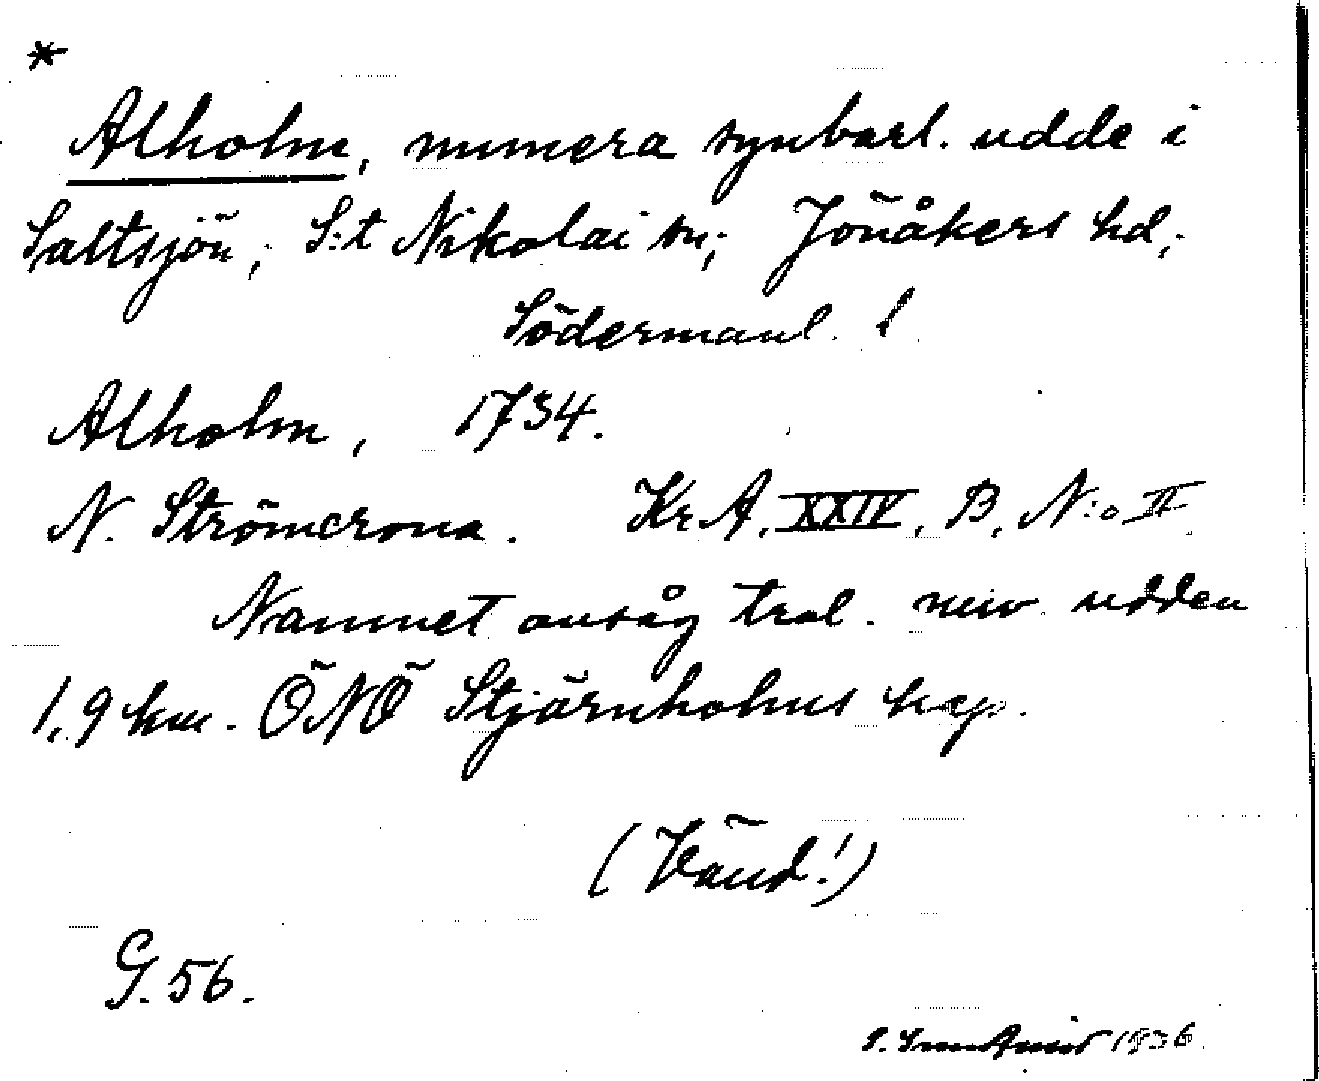 *
Alholm, numera synbarl. udde i
Saltsjön; S:t Nikolai sn; Jönåkers hd;
Södermanl. l
Alholm, 1734.
N. Strömcrona. Kr A, XXIV, B, N:o II
Namnet avsåg trol. nuv. udden
1,9 km. ÖNÖ Stjärnholms kap.
(Vänd!)
G. 56.
1936